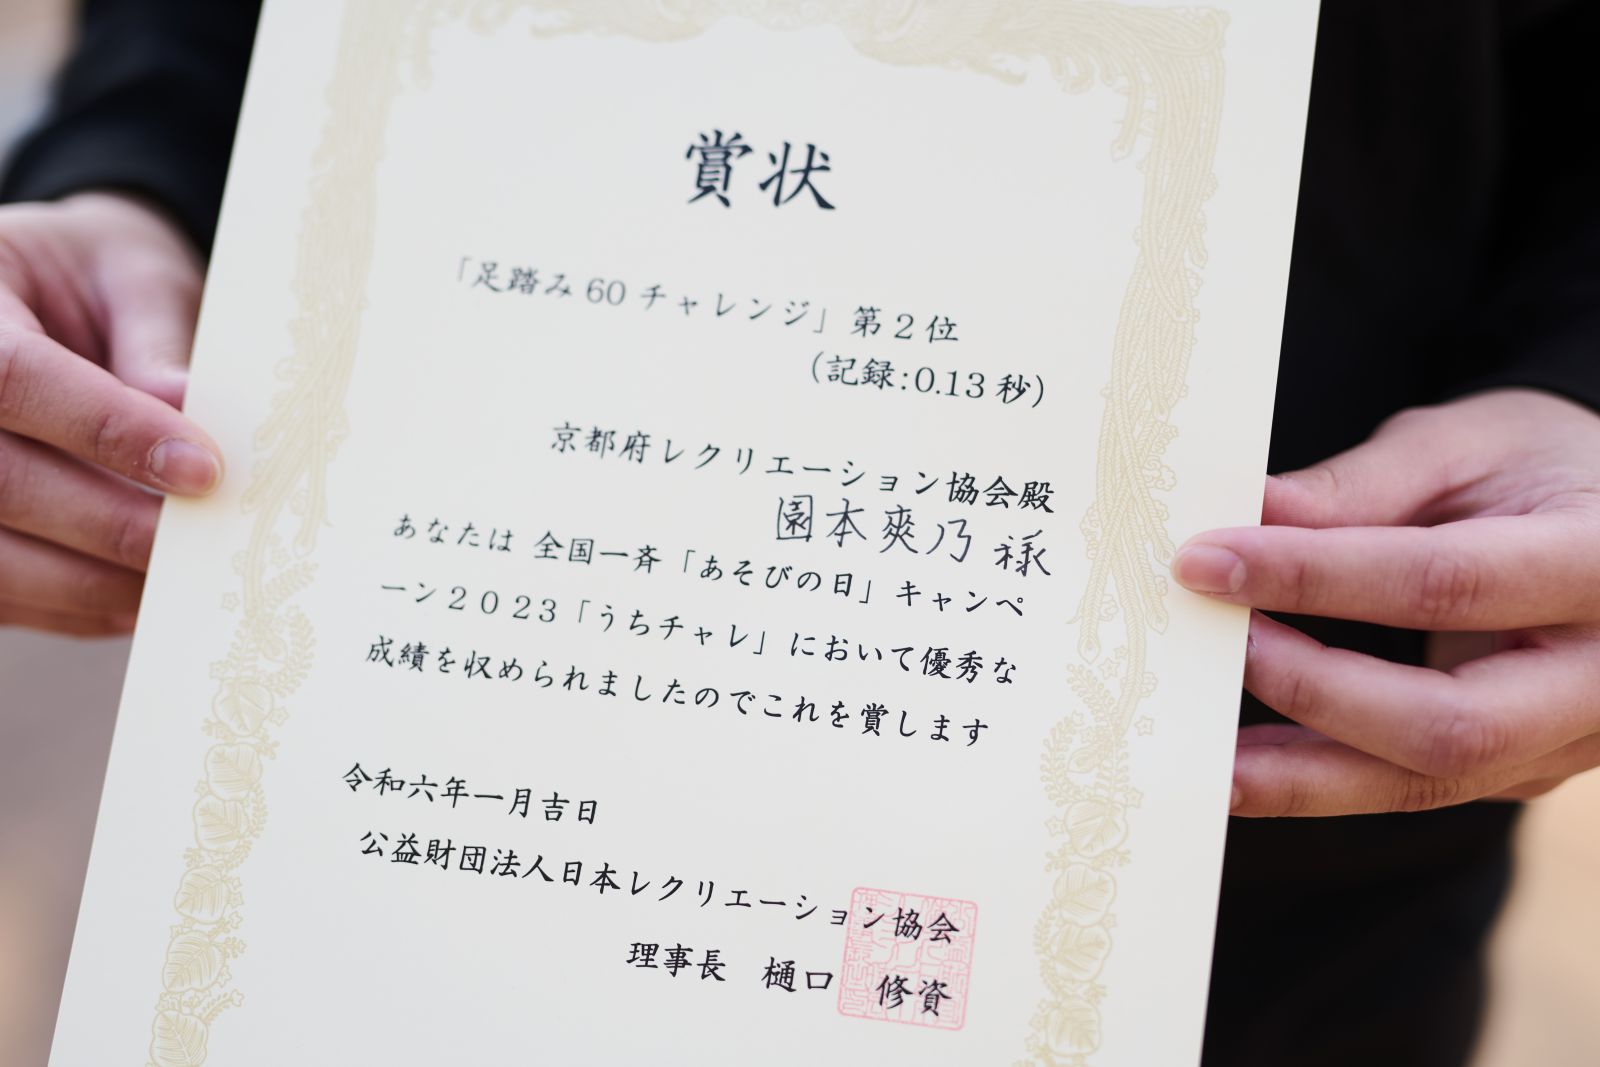 賞状
「足踏み60チャレンジ」第2位
(記録:0.13秒)
京都府レクリエーション協会殿
園本爽乃 様
あなたは 全国一斉「あそびの日」キャンペ
ーン2023「うちチャレ」において優秀な
成績を収められましたのでこれを賞します
令和六年一月吉日
公益財団法人日本レクリエーション協会
理事長 樋口 修資